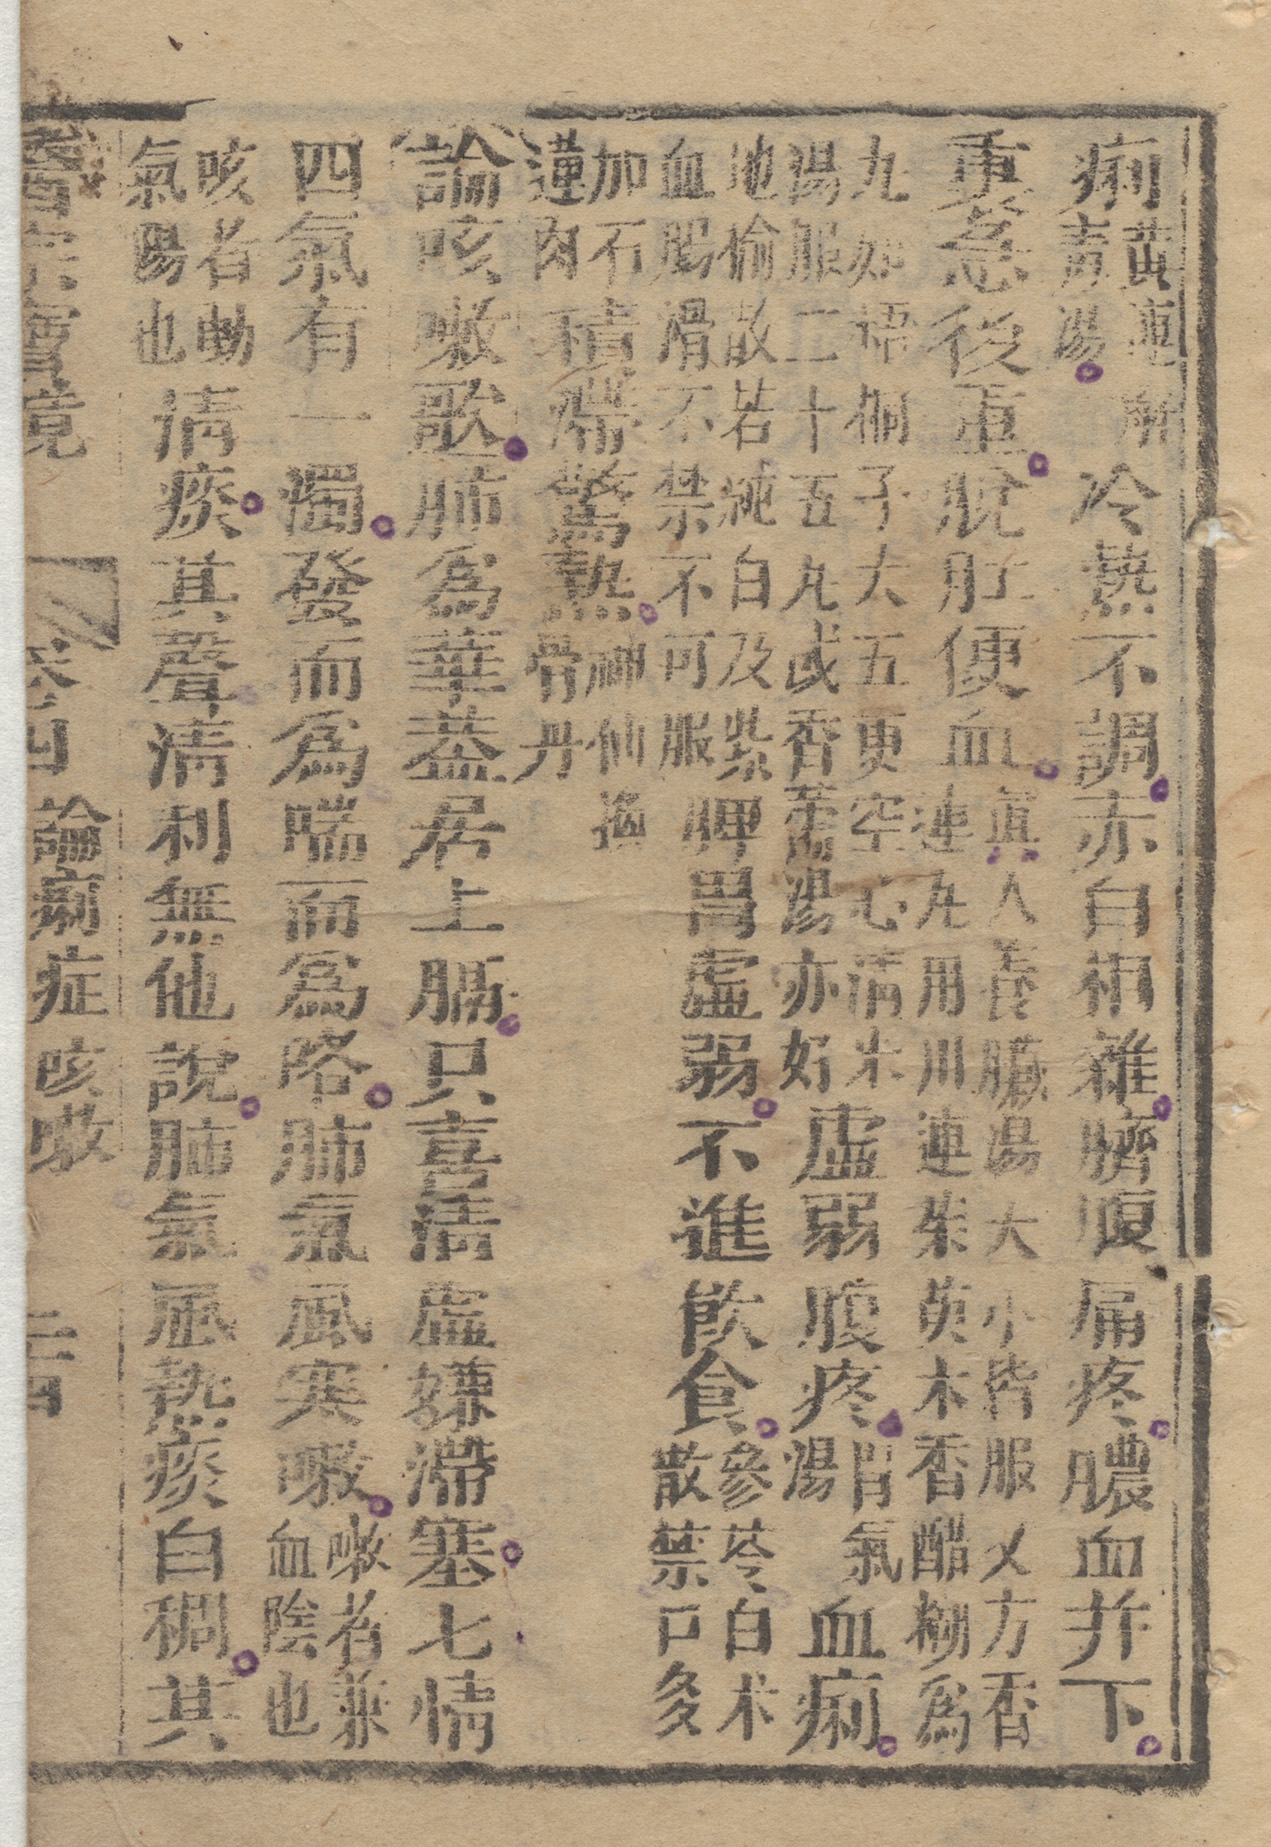 痢黃連解毒湯冷熱不調赤白相雜臍腹痛疼膿血并下
裏急後重脫肛便血真人養臟湯大小皆服又方香連丸用川連茱萸木香醋糊為
丸如梧桐子大五更空心清米湯服二十五丸或香薷湯亦好虛弱腹疼胃氣湯血痢
地榆散若純白及紫血腸滑不禁不可服脾胃虛弱不進飲食參苓白术散禁口多
加石蓮肉積滯驚熱神仙換骨丹
論咳嗽歌肺為華蓋居上膈只喜清虛嫌滯塞七情
四氣有一濁發而為喘而為咯肺氣風寒嗽嗽者兼血陰也
咳者動氣陽也清痰其聲清利無他說肺氣熱痰白稠其
醫宗寶鏡 卷四 論痢症 咳嗽